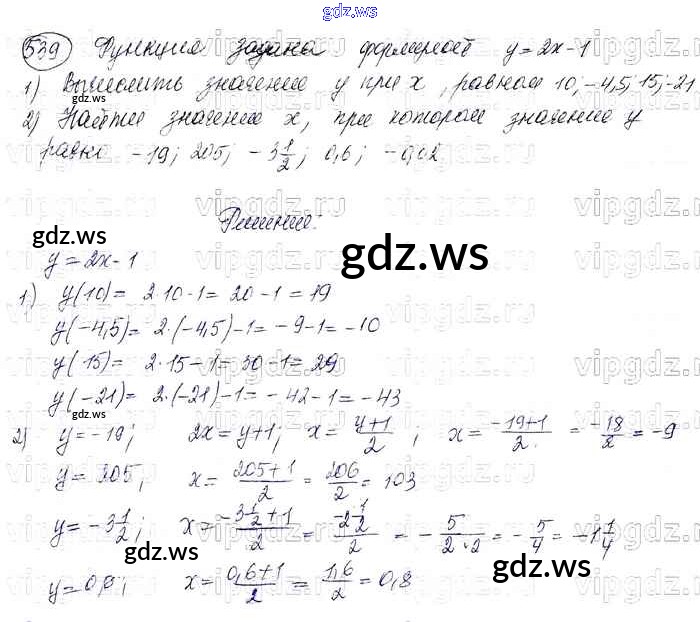 gdz.ws
539 Функция задана формулой y=2x-1
1) Вычислить значение y при x, равном 10; -4,5; 15; -21
2) Найти значение x, при котором значение y
равно -19; 205; -3 1/2; 0,6; -0,02
Решение:
gdz.ws
gdz.ws
y=2x-1
1) y(10)= 2·10-1=20-1=19
y(-4,5)=2·(-4,5)-1=-9-1=-10
y(15)= 2·15-1=30-1=29
y(-21)= 2·(-21)-1=-42-1=-43
gdz.ws
2) y=-19; 2x=y+1; x=(y+1)/2; x=(-19+1)/2=-18/2=-9
y=205; x=(205+1)/2=206/2=103
y=-3 1/2; x=(-3 1/2+1)/2=(-2 1/2)/2=-5/(2·2)=-5/4=-1 1/4
gdz.ws
gdz.ws
y=0,6; x=(0,6+1)/2=1,6/2=0,8
vipgdz.ru